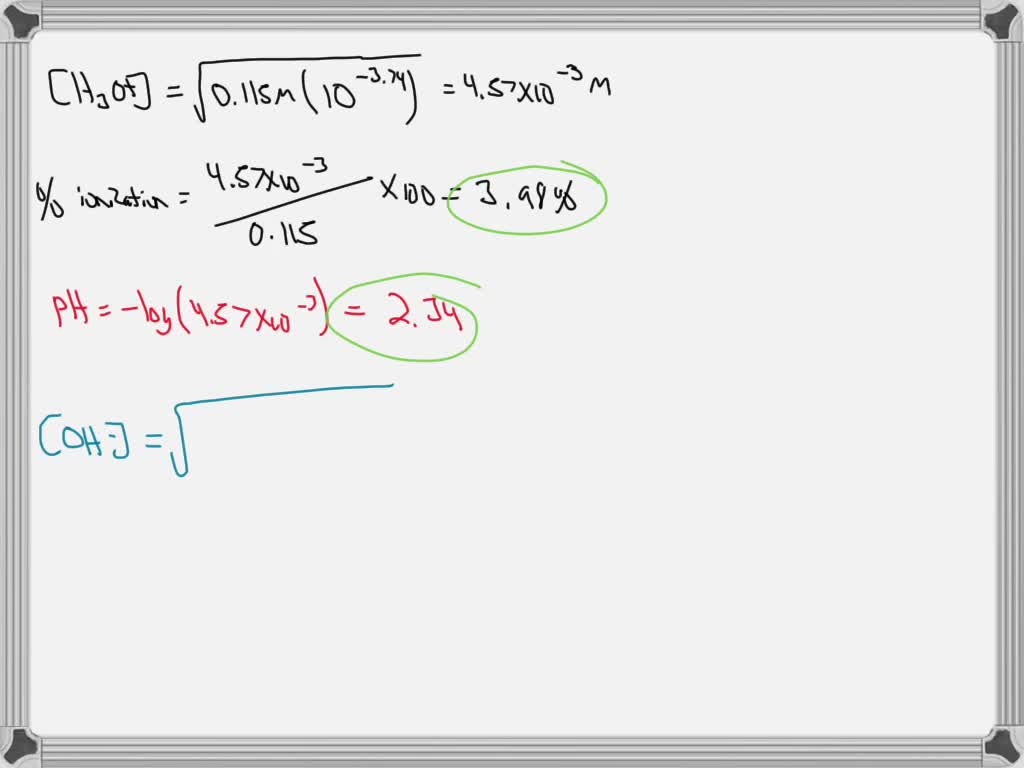 [H₃O+] = √0.115M(10^-3.74) = 4.57×10^-3 M
% ionization = 4.57×10^-3 / 0.115 ×100 = 3.98%
pH = -log(4.57×10^-3) = 2.34
[OH-] = √